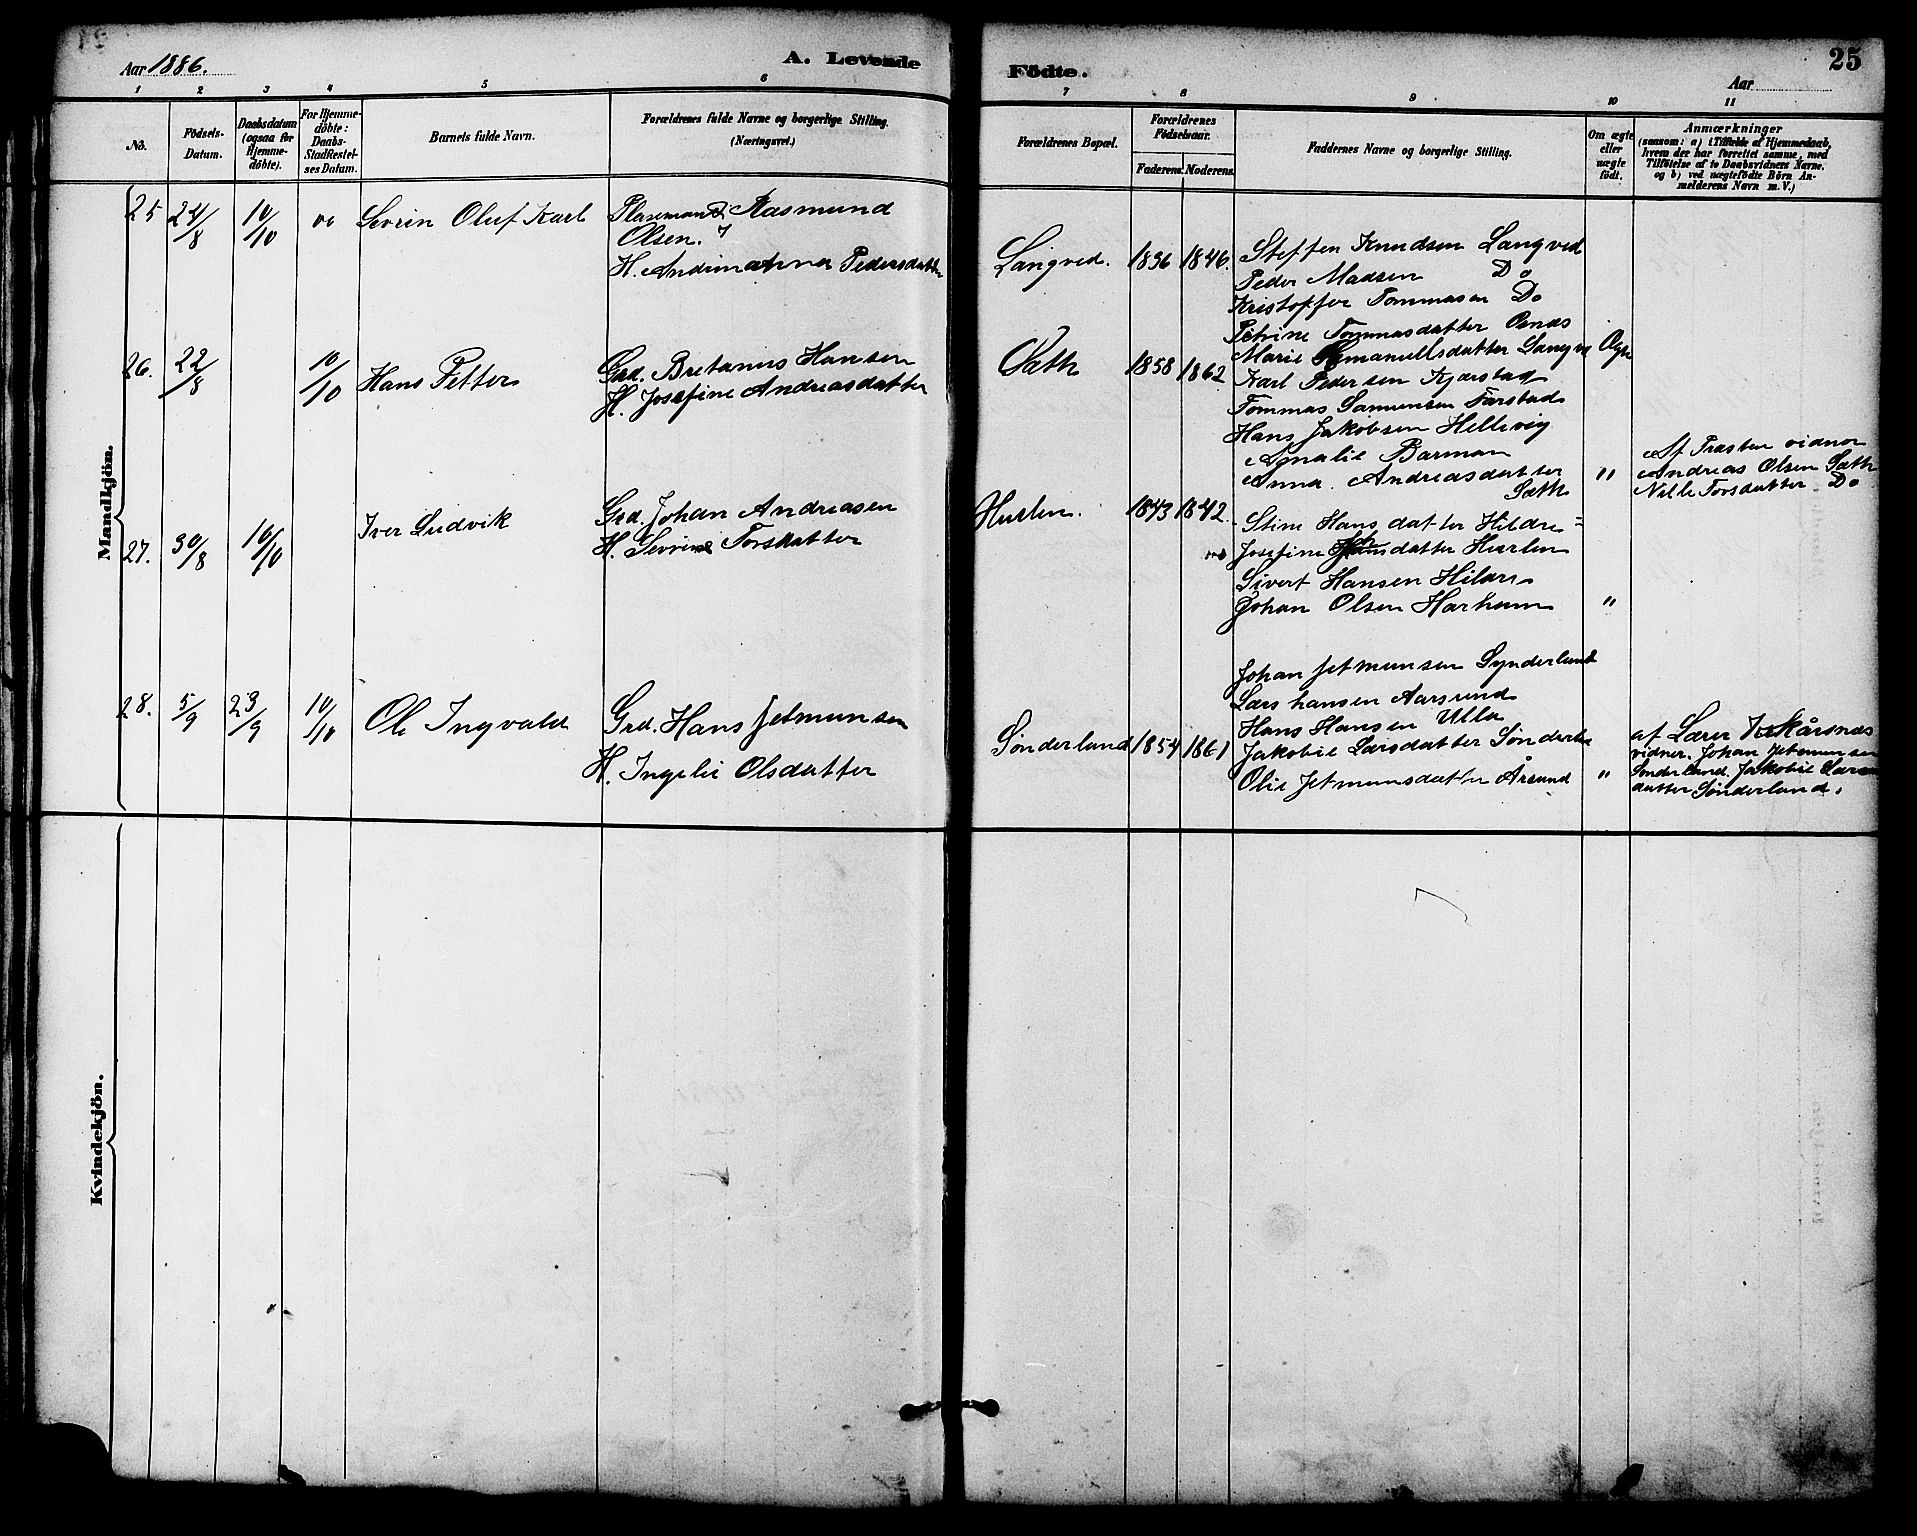 Aar 1886.
A. Levende
Födte.
25
Aar
1 2 3 4 5 6 7 8 9 10 11
No.
Födsels-
Datum.
Daabsdatum
(ogsaa for
Hjemme-
döbte).
For Hjemme-
döbte:
Daabs-
Stadfæstel-
ses Datum.
Barnets fulde Navn.
Forældrenes fulde Navne og borgerlige Stilling.
(Næringsvei.)
Forældrenes Bopæl.
Forældrenes
Födselsaar.
Faderens. Moderens.
Faddernes Navne og borgerlige Stilling.
Om ægte
eller
uægte
födt.
Anmærkninger
(saasom: a) i Tilfælde af Hjemmedaab,
hvem der har forrettet samme, med
Tilföielse af to Daabsvidners Navne,
og b) ved uægtefödte Börn An-
melderens Navn m. V.)
Mandkjön.
25 24/8 10/10 Sevrin Oluf Karl
Plasemand Rasmund
Olsen.
H. Andrina Pedersdatter
Langved. 1836 1846.
Steffen Knudsen Langved
Peder Madsen Do
Kristoffer Tommasen Do
Petrine Tommasdatter
Marie Emanuelsdatter
26. 22/8 10/10 Hans Petter
Grd. Bretanus Hansen
H. Josefine Andreasdatter
Sæth 1858 1862
Karl Pedersen Kjærstad
Tommas Samuensen Farstad
Hans Jakobsen Hellevig
Amalie Barman
Anna Andreasdatter
Sæth
"
Af Træsten vidner
Andreas Olsen Sæth
Nille Torsdatter Do
27. 30/8 10/10 Iver Ludvik
Grd. Johan Andreasen
H. Sevrine Torsdatter
Huslen. 1843 1842.
Stine Hansdatter Hildre
Josefine datter Huslen
Sivert Hansen Hildre
Johan Olsen Harham "
28. 5/9 23/9 10/10 Ole Ingvald
Grd. Hans Jetmunsen
H. Ingelie Olsdatter
Sønderland 1854 1861
Johan Jetmunsen Synderland
Lars hansen Aarsund
Hans Hansen Ulla
Jakobie Larsdatter Sønderla
Olie Jetmunsdatter Årsund "
af Lærer K. Skårsnæs
vidner. Johan Jetmunsen
Sønderland. Jakobie Lars
datter Sønderland.
Kvindekjön.